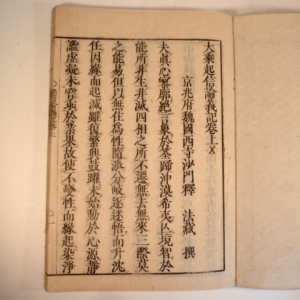 大乘起信論義記卷上
京兆府魏國西寺沙門釋 法藏 撰
夫真心寥廓絕言象於筌蹄沖漠希夷亡境智於
能所非生非滅四相之所不遷無去無來三際莫
之能易但以無住為性隨派分岐逐迷悟而升沈
任因緣而起滅雖復繁興鼓躍未始動於心源靜
謐虛凝未嘗乖於業果故使不變性而緣起染淨